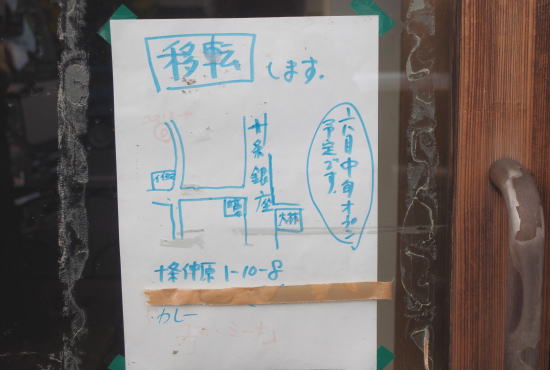 移転します。
十条銀座
大林
六月中旬オープン
予定です。
十条仲原1-10-8
カレー